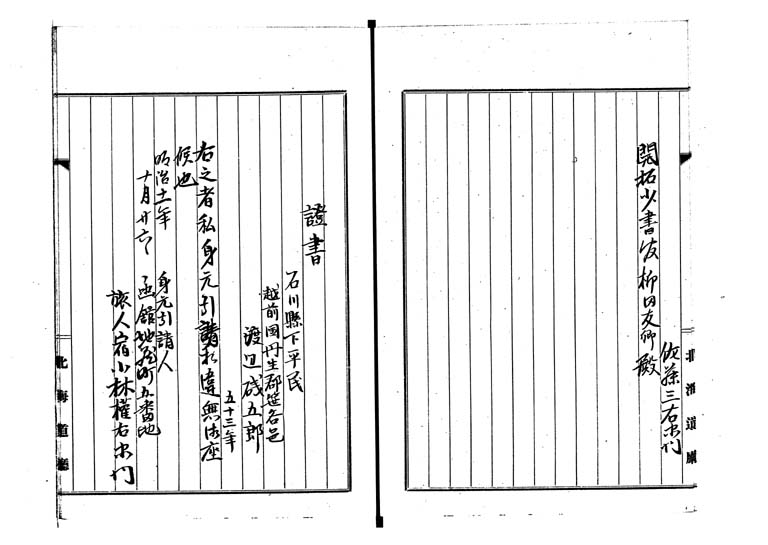 佐藤三右衛門
開拓少書官柳田友卿殿
北海道廳
證書
石川縣下平民
越前国丹生郡笹谷邑
渡辺磯五郎
五十三年
右之者私身元引請相違無御座
候也
明治十一年
十月廿六
身元引請人
函館地蔵町五番地
旅人宿小林權右衛門
北海道廳